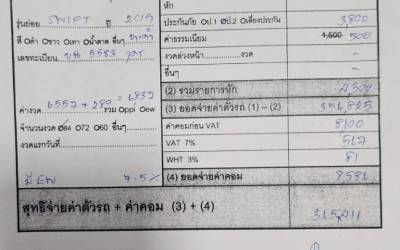 หัก
รุ่นย่อย SWIFT ปี 2019
ประกันภัย ป.1 ป.2 เลี่ยงประกัน 3,800
สี ดำ ขาว เทา น้ำตาล อื่นๆ
ค่าธรรมเนียม 1,500 500
เลขทะเบียน 5583
งวดล่วงหน้า งวด -
อื่นๆ -
(2) รวมรายการหัก 4300
ค่างวด 6557 + 280 = 6837 รวม ppi ew
(3) ยอดจ่ายค่าตัวรถ (1) - (2)
จำนวนงวด 84 72 60 อื่นๆ
ค่าคอมก่อน VAT 8100
งวดแรกวันที่
VAT 7% 567
WHT 3% 81
มี EW 7.5%
(4) ยอดจ่ายค่าคอม 8586
สุทธิจ่ายค่าตัวรถ + ค่าคอม (3) + (4)